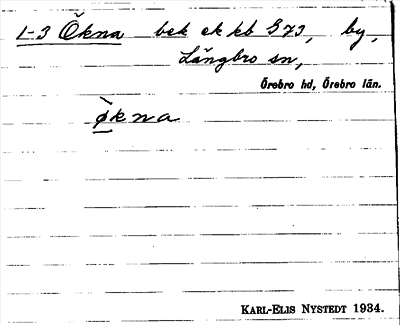 1-3 Ökna bek ek kb S73, by,
Längbro sn,
Örebro hd, Örebro län.
økna
KARL-ELIS NYSTEDT 1934.